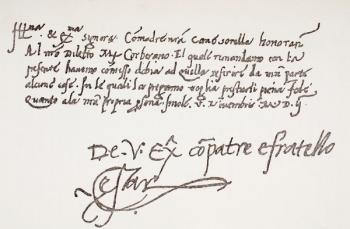 Illma. & exma. Synora Comadre mia Caris sorella honoran
Al mro Dilecto Mr Corberano. El quale remandamo con la
presente havemo comisso debia ad quella referire da mia parte
alcune cose. In le quali la pregamo voglia prestarli piena fede
Quanto alla mia propria
De. V. Ex compatre e fratello
Cesar